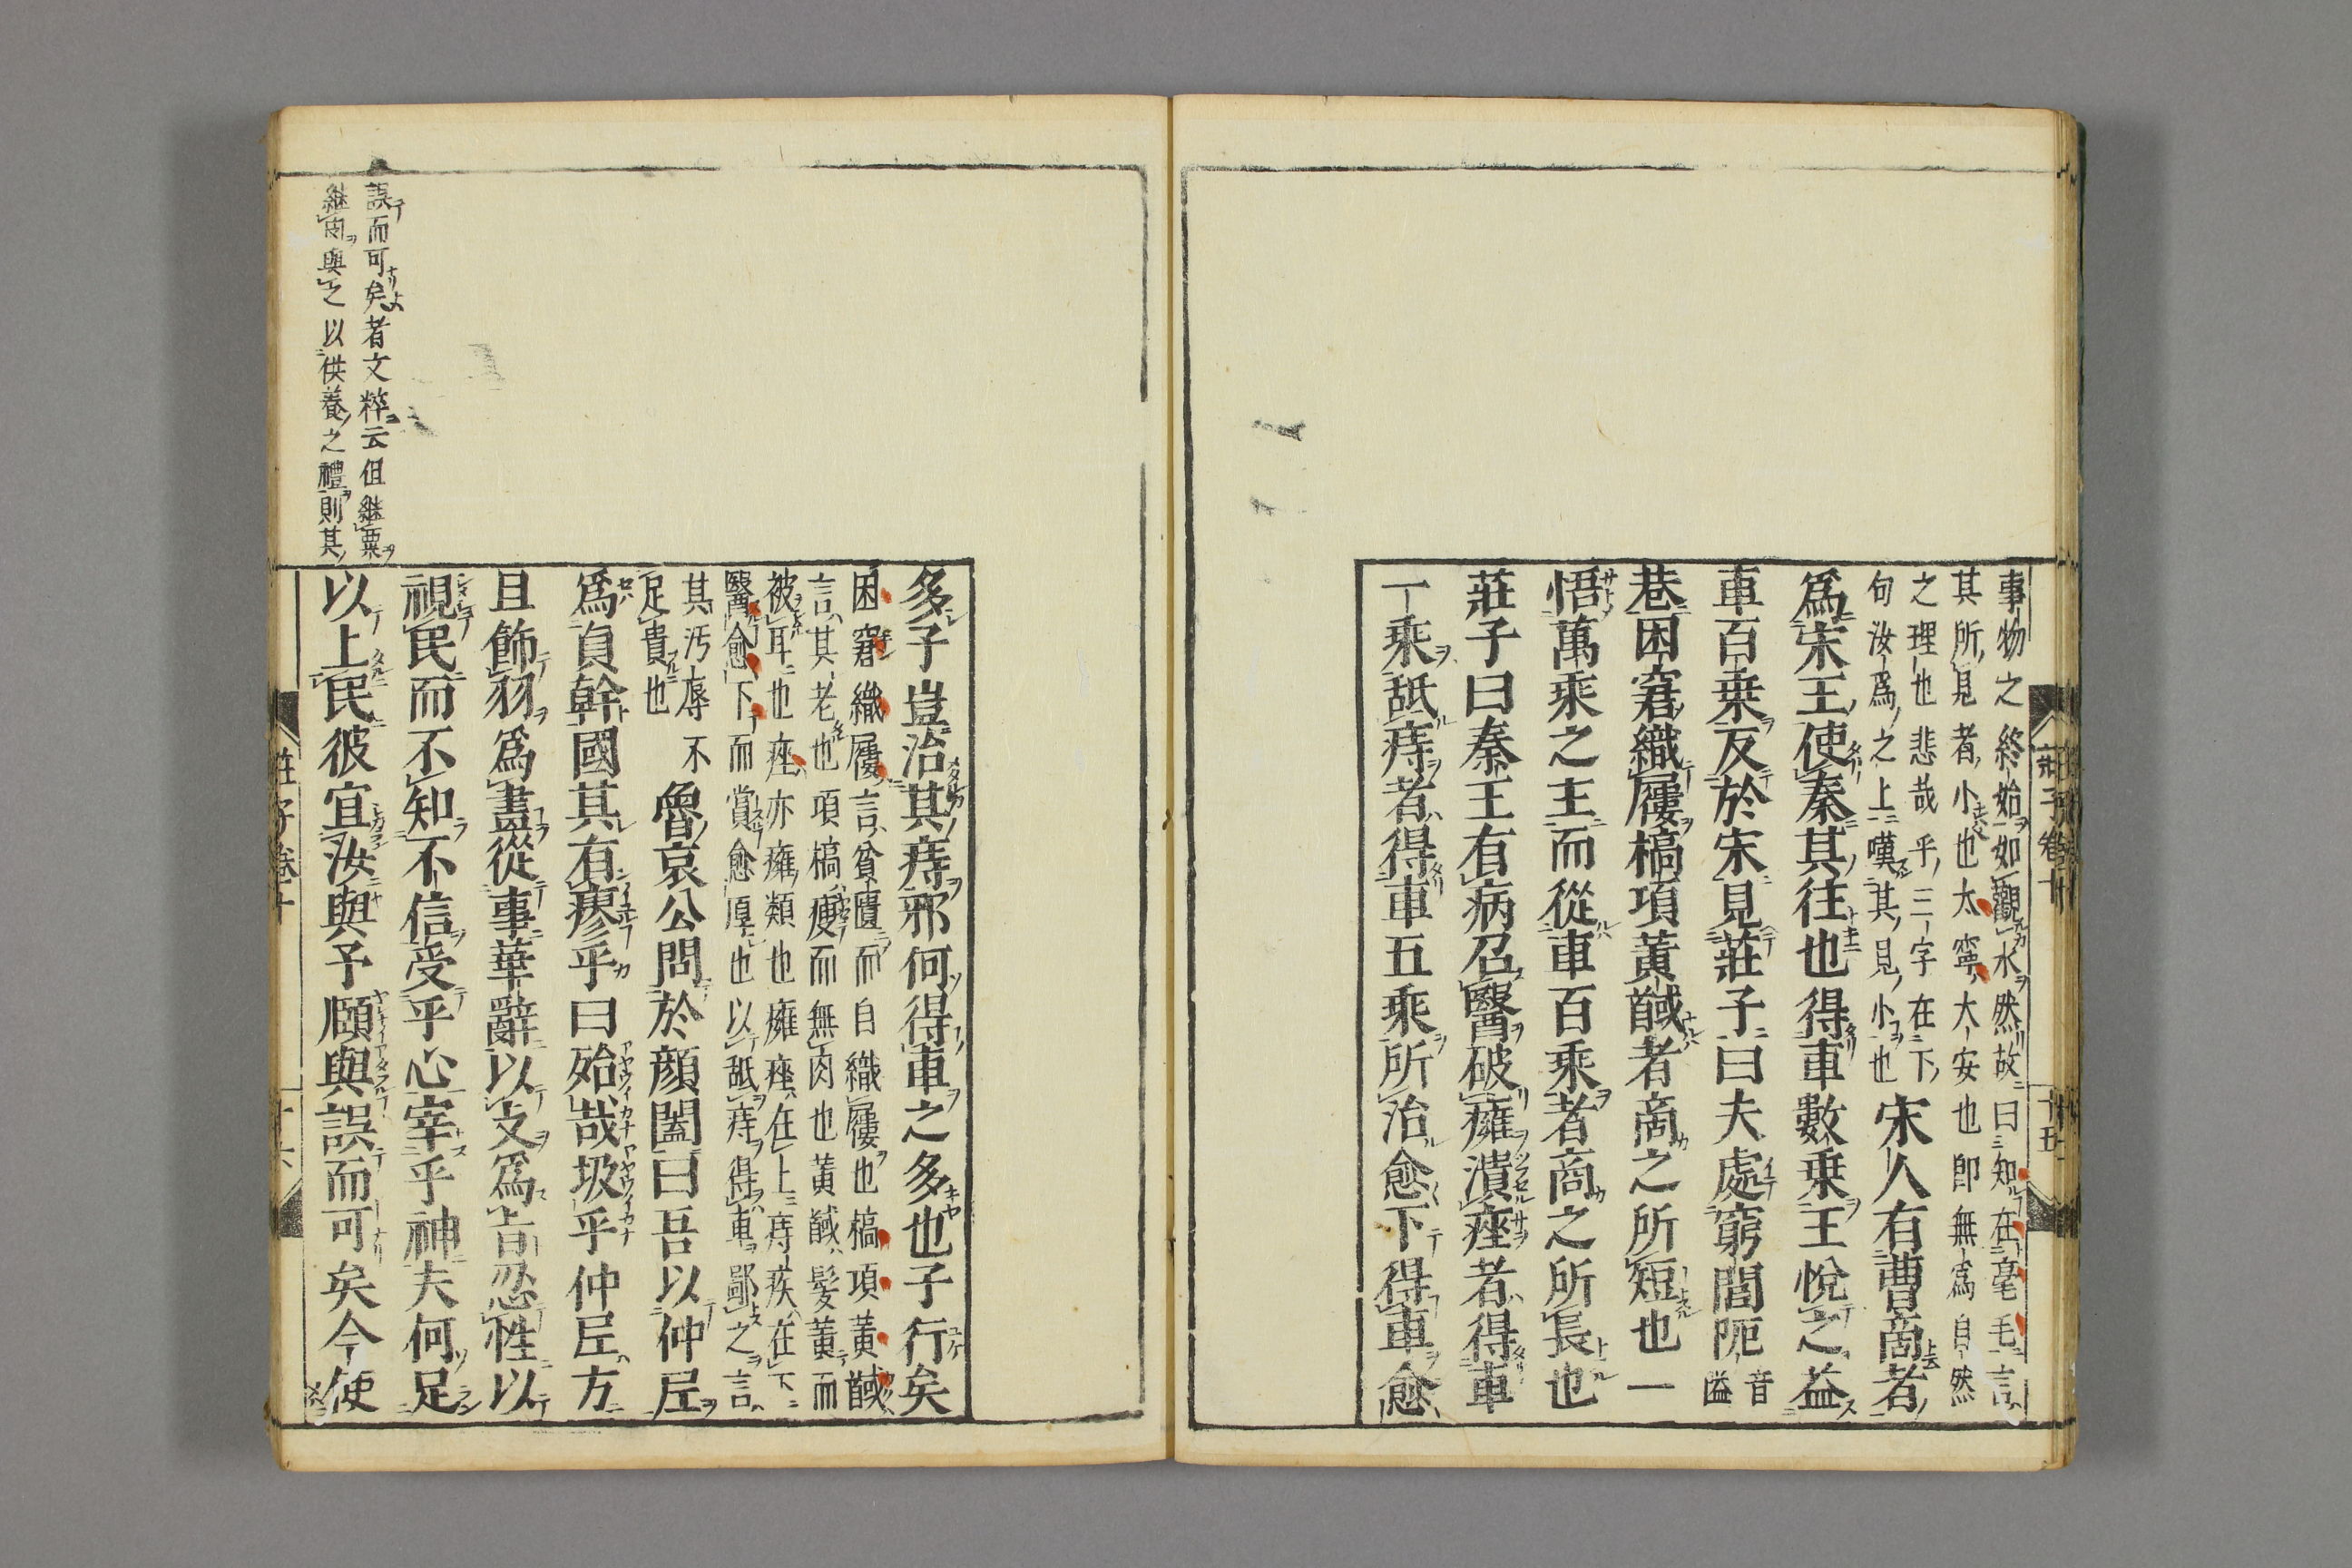 莊子卷十
十五
事物之終始如觀水然故曰知在毫毛言
其所見者小也太寧大安也卽無爲自然
之理也悲哉乎三字在下
句汝爲之上嘆其見小也
宋人有曹商者
爲宋王使秦其往也得車數乗王悅之益
車百乗反於宋見莊子曰夫處窮閭阨音
隘
巷困窘織屨槁項黃馘者商之所短也一
悟萬乘之主而從車百乘者商之所長也
莊子曰秦王有病召醫破癰潰痤者得車
一乘舐痔者得車五乘所治愈下得車愈
多子豈治其痔邪何得車之多也子行矣
困窘織屨言貧匱而自織屨也槁項黃馘
言其老也項槁瘦而無肉也黃馘髮黃而
被耳也痤亦癰類也癰痤在上痔疾在下
醫愈下而賞愈厚也以舐痔得車鄙之言
其汚辱不
足貴也
魯哀公問於顔闔曰吾以仲𡊣
爲貞幹國其有瘳乎曰殆哉圾乎仲𡊣方
且飾羽爲畫從事華辭以支爲旨忍性以
視民而不知不信受乎心宰乎神夫何足
以上民彼宜汝與予頤與誤而可矣今使
誤而可矣者文粹云但繼粟
繼肉與之以供養之禮則其
莊子卷十
十六